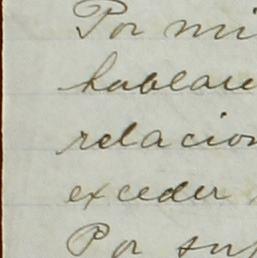 Por mi
hablare
relacion
exceder
Por su